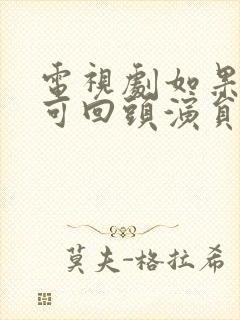 電視劇如果
可回頭演員
莫夫-格拉希